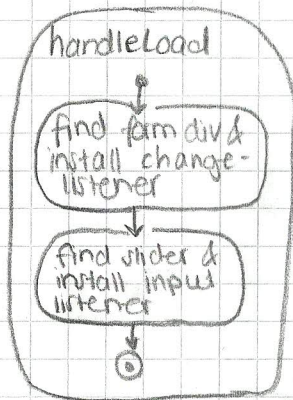 handleLoad
find form div &
install change-
listener
find slider &
install input
listener